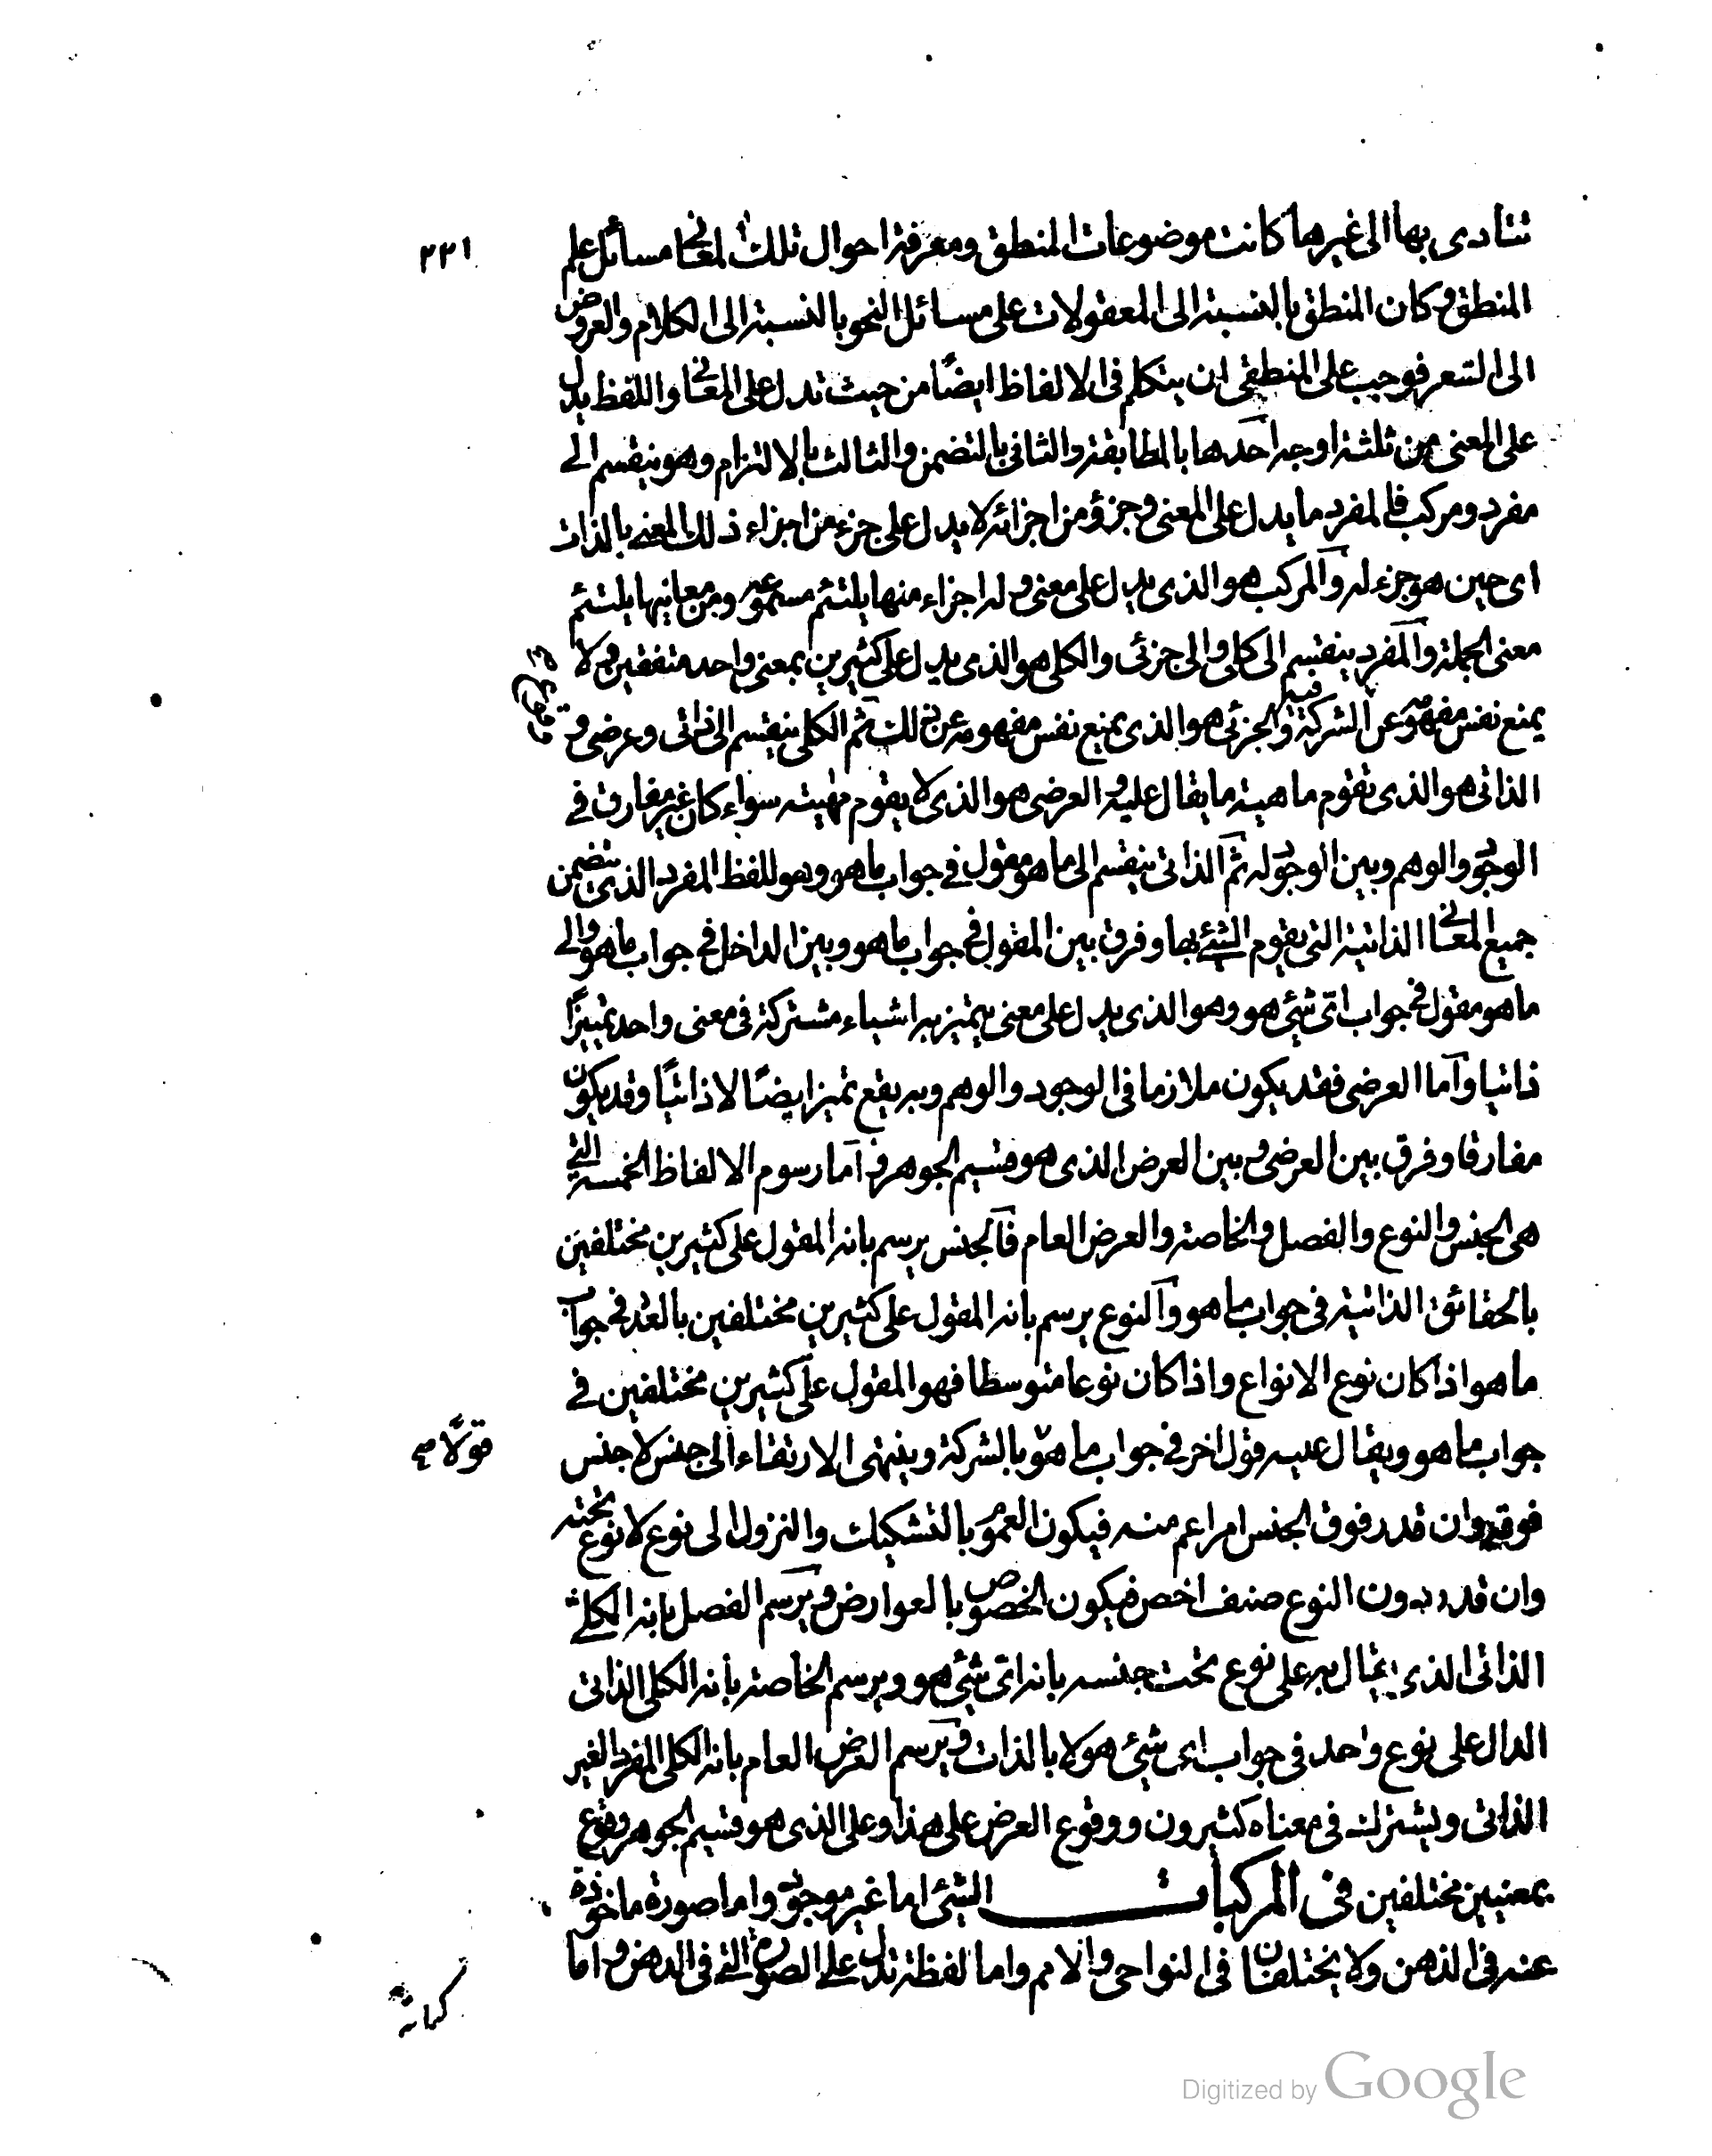 ٢٢١
تتادى بها الى غيرها كانت موضوعات المنطق ومعرفة احوال تلك المعانى مسائل علم
المنطق وكان المنطق بالنسبة الى المعقولات على مسائل النحو بالنسبة الى الكلام والعروض
الى الشعر فوجب على المنطقى ان يتكلم فى الالفاظ ايضًا من حيث تدل على المعانى واللفظ يدل
على المعنى من ثلثة اوجه احدها بالمطابقة والثانى بالتضمن والثالث بالالتزام وهو ينقسم الى
مفرد ومركب فالمفرد ما يدل على المعنى وجزؤ من اجزائه لا يدل على جزء من اجزاء ذلك المعنى بالذات
اى حين هو جزء له والمركب هو الذى يدل على معنى وله اجزاء منها يلتئم مسموعه ومن معانيها يلتئم
معنى الجملة والمفرد ينقسم الى كلى والى جزئى والكلى هو الذى يدل على كثيرين بمعنى واحد متفقين ولا
يمنع نفس مفهومه عن الشركة فيه والجزئى هو الذى يمنع نفس مفهومه عن ذلك ثم الكلى ينقسم الى ذاتى وعرضى و
الذاتى هو الذى تقوم ماهيته ما يقال عليه والعرضى هو الذى لا يقوم مهيته سواء كان غير مفارق فى
الوجود والوهم وبين الوجود له ثم الذاتى ينقسم الى ما هو مقول فى جواب ما هو وهو اللفظ المفرد الذى يتضمن
جميع المعانى الذاتية التى يقوم الشئ بها وفرق بين المقول فى جواب ما هو وبين الداخل فى جواب ما هو والى
ما هو مقول فى جواب اى شئ هو وهو الذى يدل على معنى يتميز به اشياء مشتركة فى معنى واحد تمييزًا
ذاتيا واما العرضى فقد يكون ملازما فى الوجود والوهم وبه يقع تميز ايضًا لا ذاتيًا وقد يكون
مفارقا وفرق بين العرضى وبين العرض الذى هو قسيم الجوهر واما رسوم الالفاظ الخمسة التى
هى الجنس والنوع والفصل والخاصة والعرض العام فالجنس يرسم بانه المقول على كثيرين مختلفين
بالحقائق الذاتية فى جواب ما هو والنوع يرسم بانه المقول على كثيرين مختلفين بالعدد فى جواب
ما هو اذا كان نوع الانواع واذا كان نوعا متوسطا فهو المقول على كثيرين مختلفين فى
جواب ما هو ويقال عليه قول اخر فى جواب ما هو بالشركة وينتهى الارتقاء الى جنس لا جنس
قولًا صح
فوقه وان قدر فوق الجنس امر اعم منه فيكون العموم بالتشكيك والنزول الى نوع لا نوع تحته
وان قدر دون النوع صنف اخص فيكون الخصوص بالعوارض ويرسم الفصل بانه الكلى
الذاتى الذى يقال به على نوع تحت جنسه بانه اى شئ هو ويرسم الخاصة بأنه الكلى الذاتى
الدال على نوع واحد فى جواب اى شئ هو لا بالذات ويرسم العرض العام بانه الكلى المفرد الغير
الذاتى ويشترك فى معناه كثيرون ووقوع العرض على هذا وعلى الذى هو قسيم الجوهر وقوع
بمعنيين مختلفين فى المركبات الشئ اما غير موجود واما صورة ماخوذة
عنه فى الذهن ولا يختلفان فى النواحى والامم واما لفظة تدل على الصورة التى فى الذهن واما
كتابة
Digitized by Google